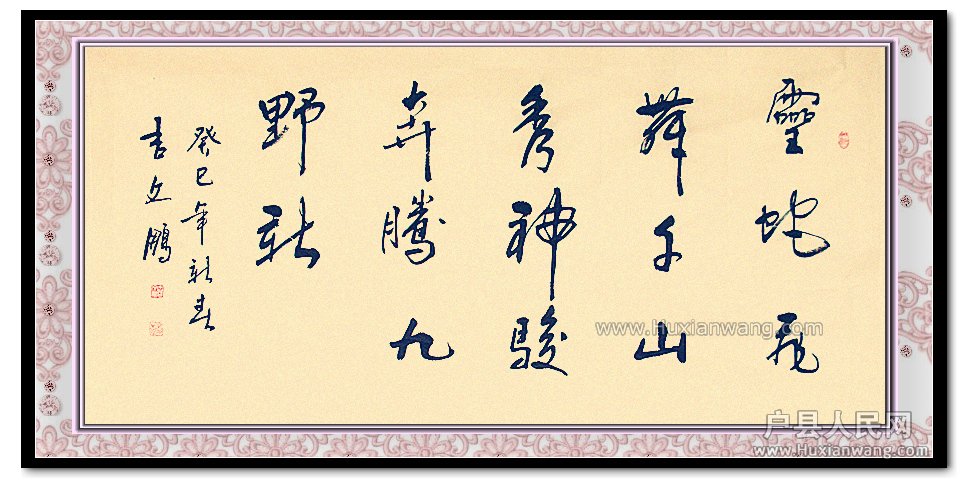 靈蛇飛
舞千山
秀神駿
奔騰九
野新
癸巳年新春
吉文鵬
www.Huxianwang.com
户县人民网
www.Huxianwang.com